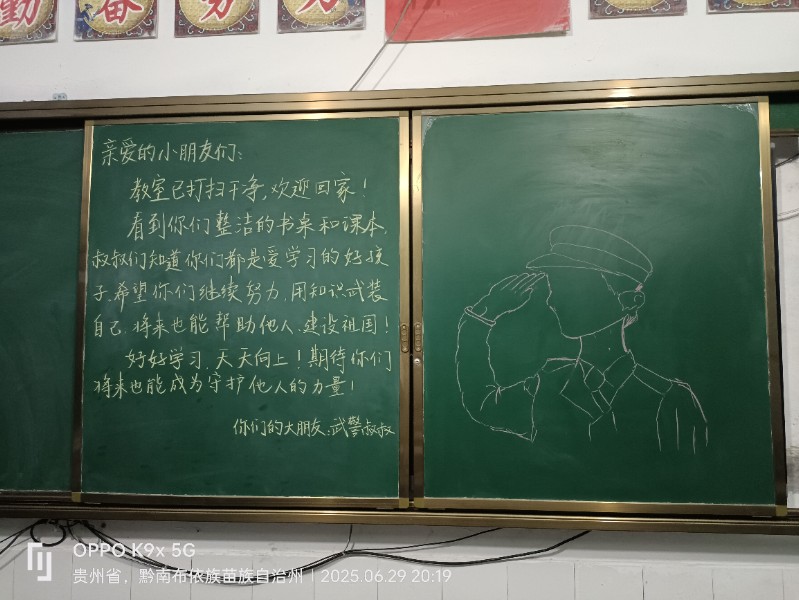 勤 奋 努 力
亲爱的小朋友们:
教室已打扫干净,欢迎回家!
看到你们整洁的书桌和课本,
叔叔们知道你们都是爱学习的好孩
子.希望你们继续努力,用知识武装
自己,将来也能帮助他人、建设祖国!
好好学习,天天向上!期待你们
将来也能成为守护他人的力量!
你们的大朋友:武警叔叔
OPPO K9x 5G
贵州省,黔南布依族苗族自治州 | 2025.06.29 20:19